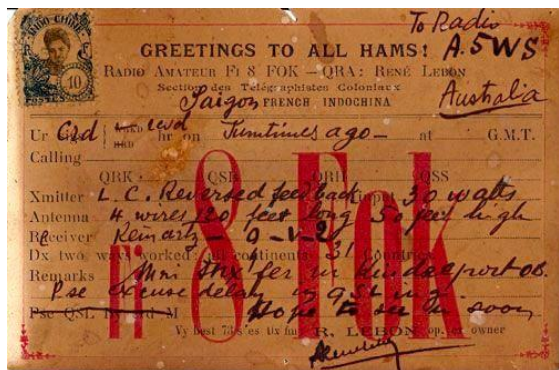 INDO-CHINE
10
POSTES
To Radio
A.5WS
Australia
GREETINGS TO ALL HAMS!
RADIO AMATEUR FI 8 FOK — QRA: RENÉ LEBON
Section des Télégraphistes Coloniaux
Saigon FRENCH INDOCHINA
Ur Crd WRKD HRD rcvd hr on Sumtimes ago — at G.M.T.
Calling
QRK: QSB QRH QSS
Xmitter L.C. Reversed feedback Input 30 watts
Antenna 4 wires 120 feet long 50 feet high
Receiver Reinartz — 0-V-2
Dx two ways worked: all continents 31 Countries
Remarks Mni Tnx fer ur kind report OB.
Pse excuse delay in QSLing.
Pse QSL by crd M Hope to see U soon
Vy best 73's es tix fm R. LEBON op. ex owner
FI 8 Fok